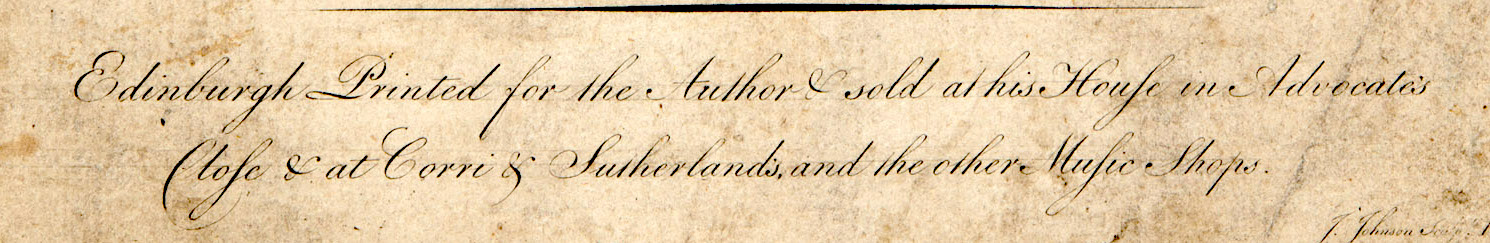 Edinburgh Printed for the Author & sold at his Houſe in Advocate's
Cloſe & at Corri & Sutherland's, and the other Muſic Shops.
J. Johnson Sculp.ᵗ